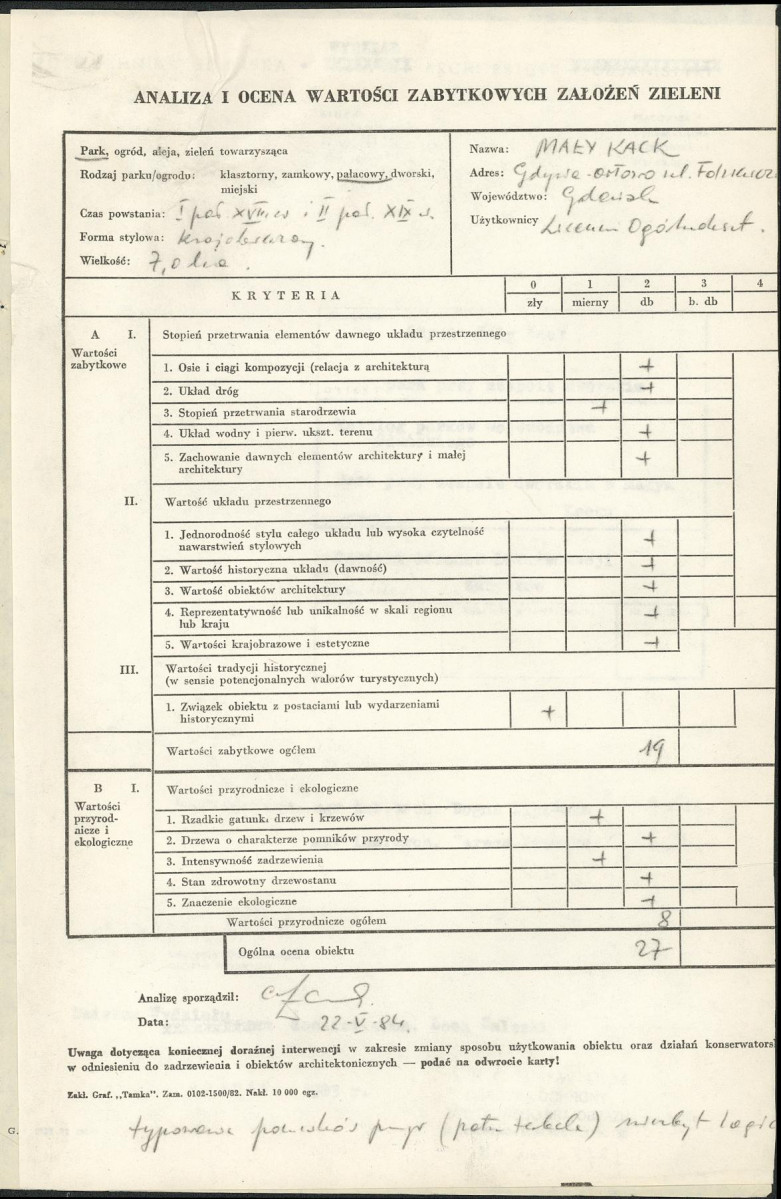 ANALIZA I OCENA WARTOŚCI ZABYTKOWYCH ZAŁOŻEŃ ZIELENI
Park, ogród, aleja, zieleń towarzysząca
Rodzaj parku/ogrodu: klasztorny, zamkowy, pałacowy, dworski,
miejski
Czas powstania: I poł XVIII w i II poł. XIX w.
Forma stylowa: Krajobrazowy.
Wielkość: 7,0 ha.
Nazwa: MAŁY KACK
Adres: Gdynia-Orłowo ul.
Województwo: Gdańsk
Użytkownicy Liceum Ogólnokszt.
KRYTERIA
0 1 2 3 4
zły mierny db b. db
A I. Stopień przetrwania elementów dawnego układu przestrzennego
Wartości
zabytkowe
1. Osie i ciągi kompozycji (relacja z architekturą +
2. Układ dróg +
3. Stopień przetrwania starodrzewia +
4. Układ wodny i pierw. ukszt. terenu +
5. Zachowanie dawnych elementów architektury i małej
architektury +
II. Wartość układu przestrzennego
1. Jednorodność stylu całego układu lub wysoka czytelność
nawarstwień stylowych +
2. Wartość historyczna układu (dawność) +
3. Wartość obiektów architektury +
4. Reprezentatywność lub unikalność w skali regionu
lub kraju +
5. Wartości krajobrazowe i estetyczne +
III. Wartości tradycji historycznej
(w sensie potencjonalnych walorów turystycznych)
1. Związek obiektu z postaciami lub wydarzeniami
historycznymi +
Wartości zabytkowe ogółem 19
B I. Wartości przyrodnicze i ekologiczne
Wartości
przyrod-
nicze i
ekologiczne
1. Rzadkie gatunki drzew i krzewów +
2. Drzewa o charakterze pomników przyrody +
3. Intensywność zadrzewienia +
4. Stan zdrowotny drzewostanu +
5. Znaczenie ekologiczne +
Wartości przyrodnicze ogółem 8
Ogólna ocena obiektu 27
Analizę sporządził:
Data: 22-V-84.
Uwaga dotycząca koniecznej doraźnej interwencji w zakresie zmiany sposobu użytkowania obiektu oraz działań konserwators
w odniesieniu do zadrzewienia i obiektów architektonicznych — podać na odwrocie karty!
Zakł. Graf. „Tamka". Zam. 0102-1500/82. Nakł. 10 000 egz.
G.